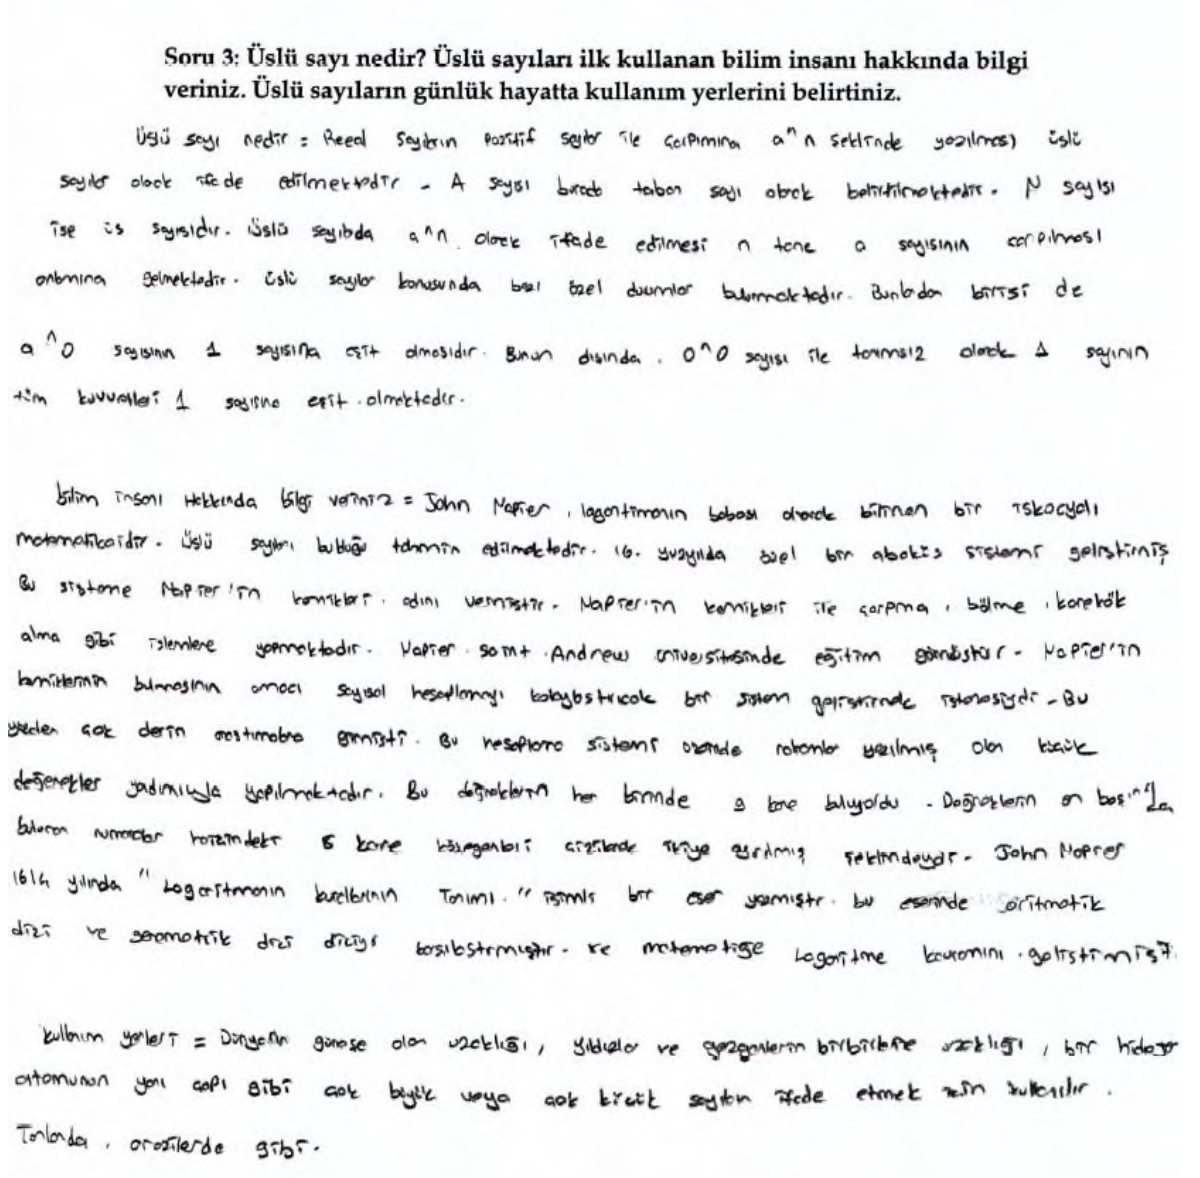 Soru 3: Üslü sayı nedir? Üslü sayıları ilk kullanan bilim insanı hakkında bilgi
veriniz. Üslü sayıların günlük hayatta kullanım yerlerini belirtiniz.
Üslü sayı nedir = Reeal Sayıların Pozitif sayılar ile çarpımına a^n n şeklinde yazılması üslü
sayılar olarak ifade edilmektedir. A sayısı burada taban sayı olarak belirtilmektedir. N sayısı
ise üs sayısıdır. Üslü sayılarda a^n olarak ifade edilmesi n tane a sayısının carpılması
anlamına gelmektedir. üslü sayılar konusunda bazı özel durumlar bulunmaktadır. Bunlardan birisi de
a^0 sayısının 1 sayısına eşit olmasıdır. Bunun dışında. 0^0 sayısı ile tanımsız olarak 1 sayının
tüm kuvvetleri 1 sayısına eşit olmaktadır.
bilim insanı Hakkında bilgi veriniz = John Napier, logaritmanın babası olarak bilinen bir iskoçyalı
matematikcidir. Üslü sayıları bulduğu tahmin edilmektedir. 16. yüzyılda özel bir abaküs sistemi geliştirmiş
Bu sisteme Napier'in kemikleri. adını vermiştir. Napier'in kemikleri ile çarpma, bölme, karekök
alma gibi işlemlere yapmaktadır. Napier. saint. Andrew üniversitesinde eğitim görmüştür. Napier'in
kemiklerinin bulmasının amacı sayısal hesaplamayı kolaylaştıracak bir sistem geliştirmek istemesiydi. Bu
yüzden çok derin araştırmalara girmişti. Bu hesaplama sistemi üzerinde rakamlar yazılmış olan küçük
değenekler yardımıyla yapılmaktadır. Bu değneklerin her birinde 9 kare buluyoldu. Değneklerin en başında
bulunan numaralar hanesindeki kare köşegenleri çizilerek ikiye ayrılmış şeklindeydi. John Napier
1614 yılında "Logaritmanın kurallarının Tanımı." isimli bir eser yazmıştır. bu eserinde aritmatik
dizi ve geometrik dizi diziyi karşılaştırmıştır. ve matematiğe Logaritma kavramını. geliştirmiştir
kullanım yerleri = Dünyanın güneşe olan uzaklığı, yıldızlar ve gezegenlerin birbirlerine uzaklığı, bir hidrojen
atomunun yarı çapı gibi çok büyük veya çok küçük sayıları ifade etmek için kullanılır.
Tarlarda, arazilerde gibi.